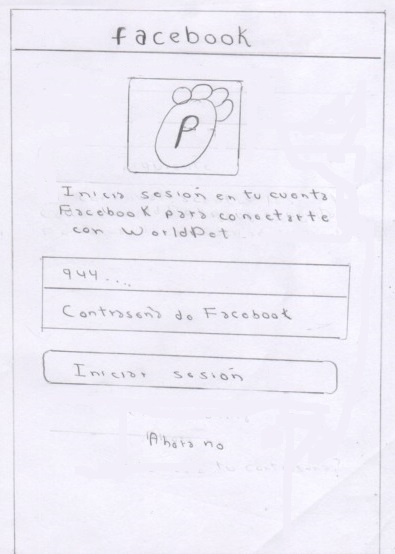 facebook
P
Inicia sesión en tu cuenta
Facebook para conectarte
con WorldPet
944....
Contraseña de Facebook
Iniciar sesión
Ahora no